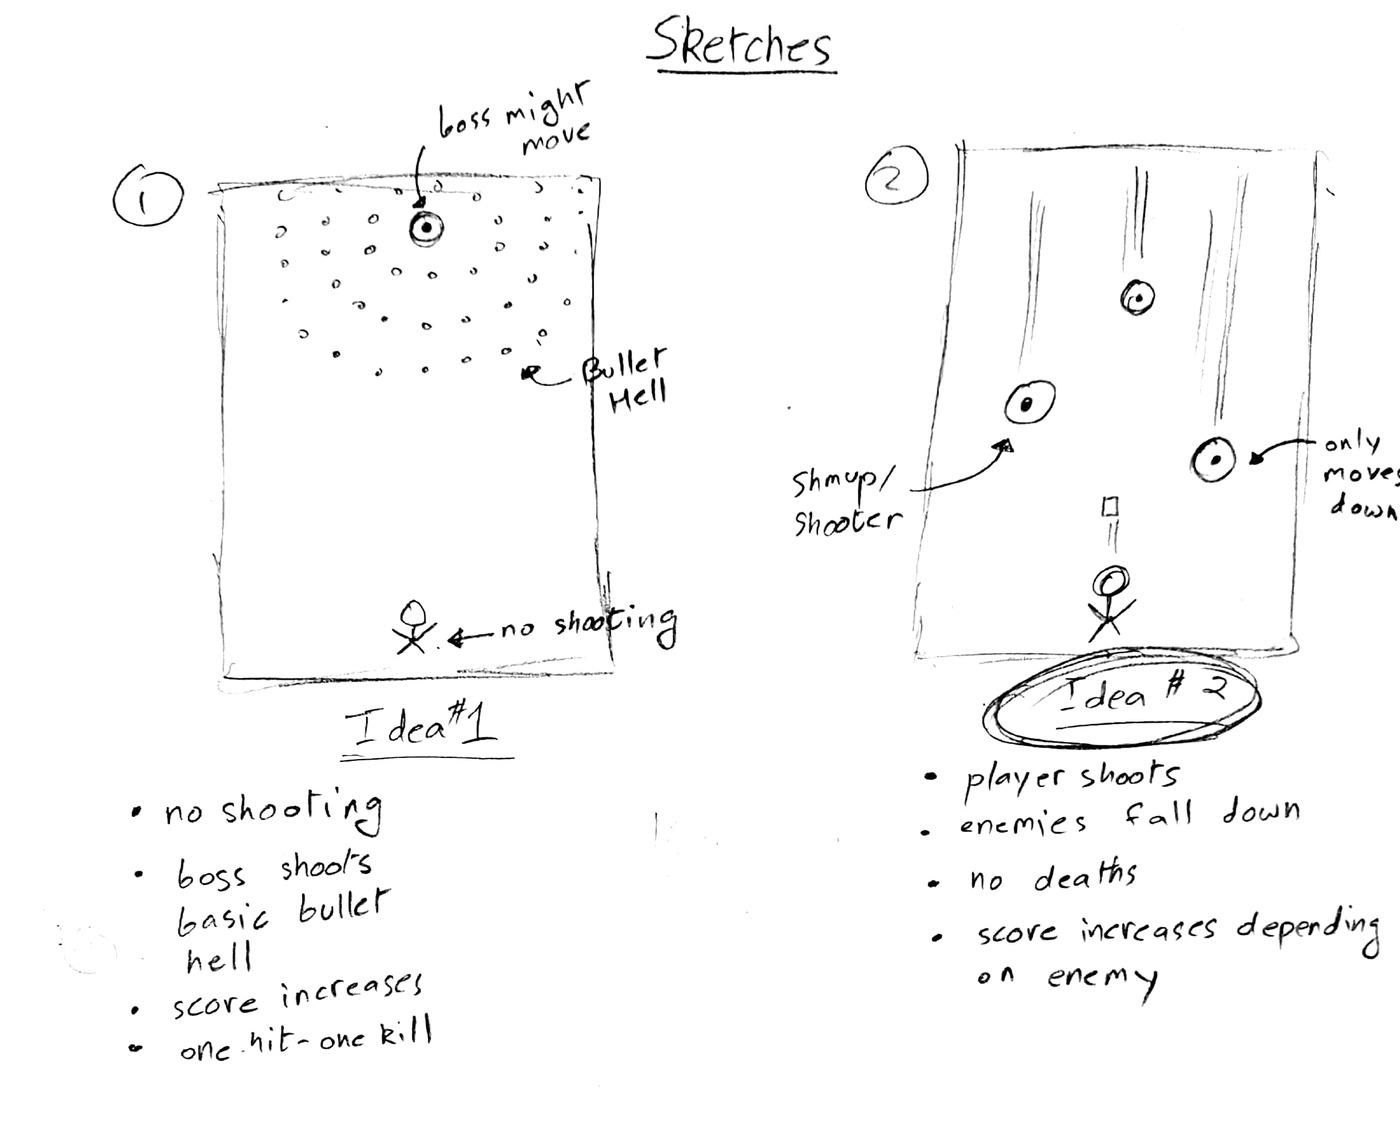 Sketches
boss might
move
1
Bullet
Hell
no shooting
Idea #1
• no shooting
• boss shoots
basic bullet
hell
• score increases
• one hit - one kill
2
Shmup/
Shooter
only
moves
down
Idea # 2
• player shoots
• enemies fall down
• no deaths
• score increases depending
on enemy